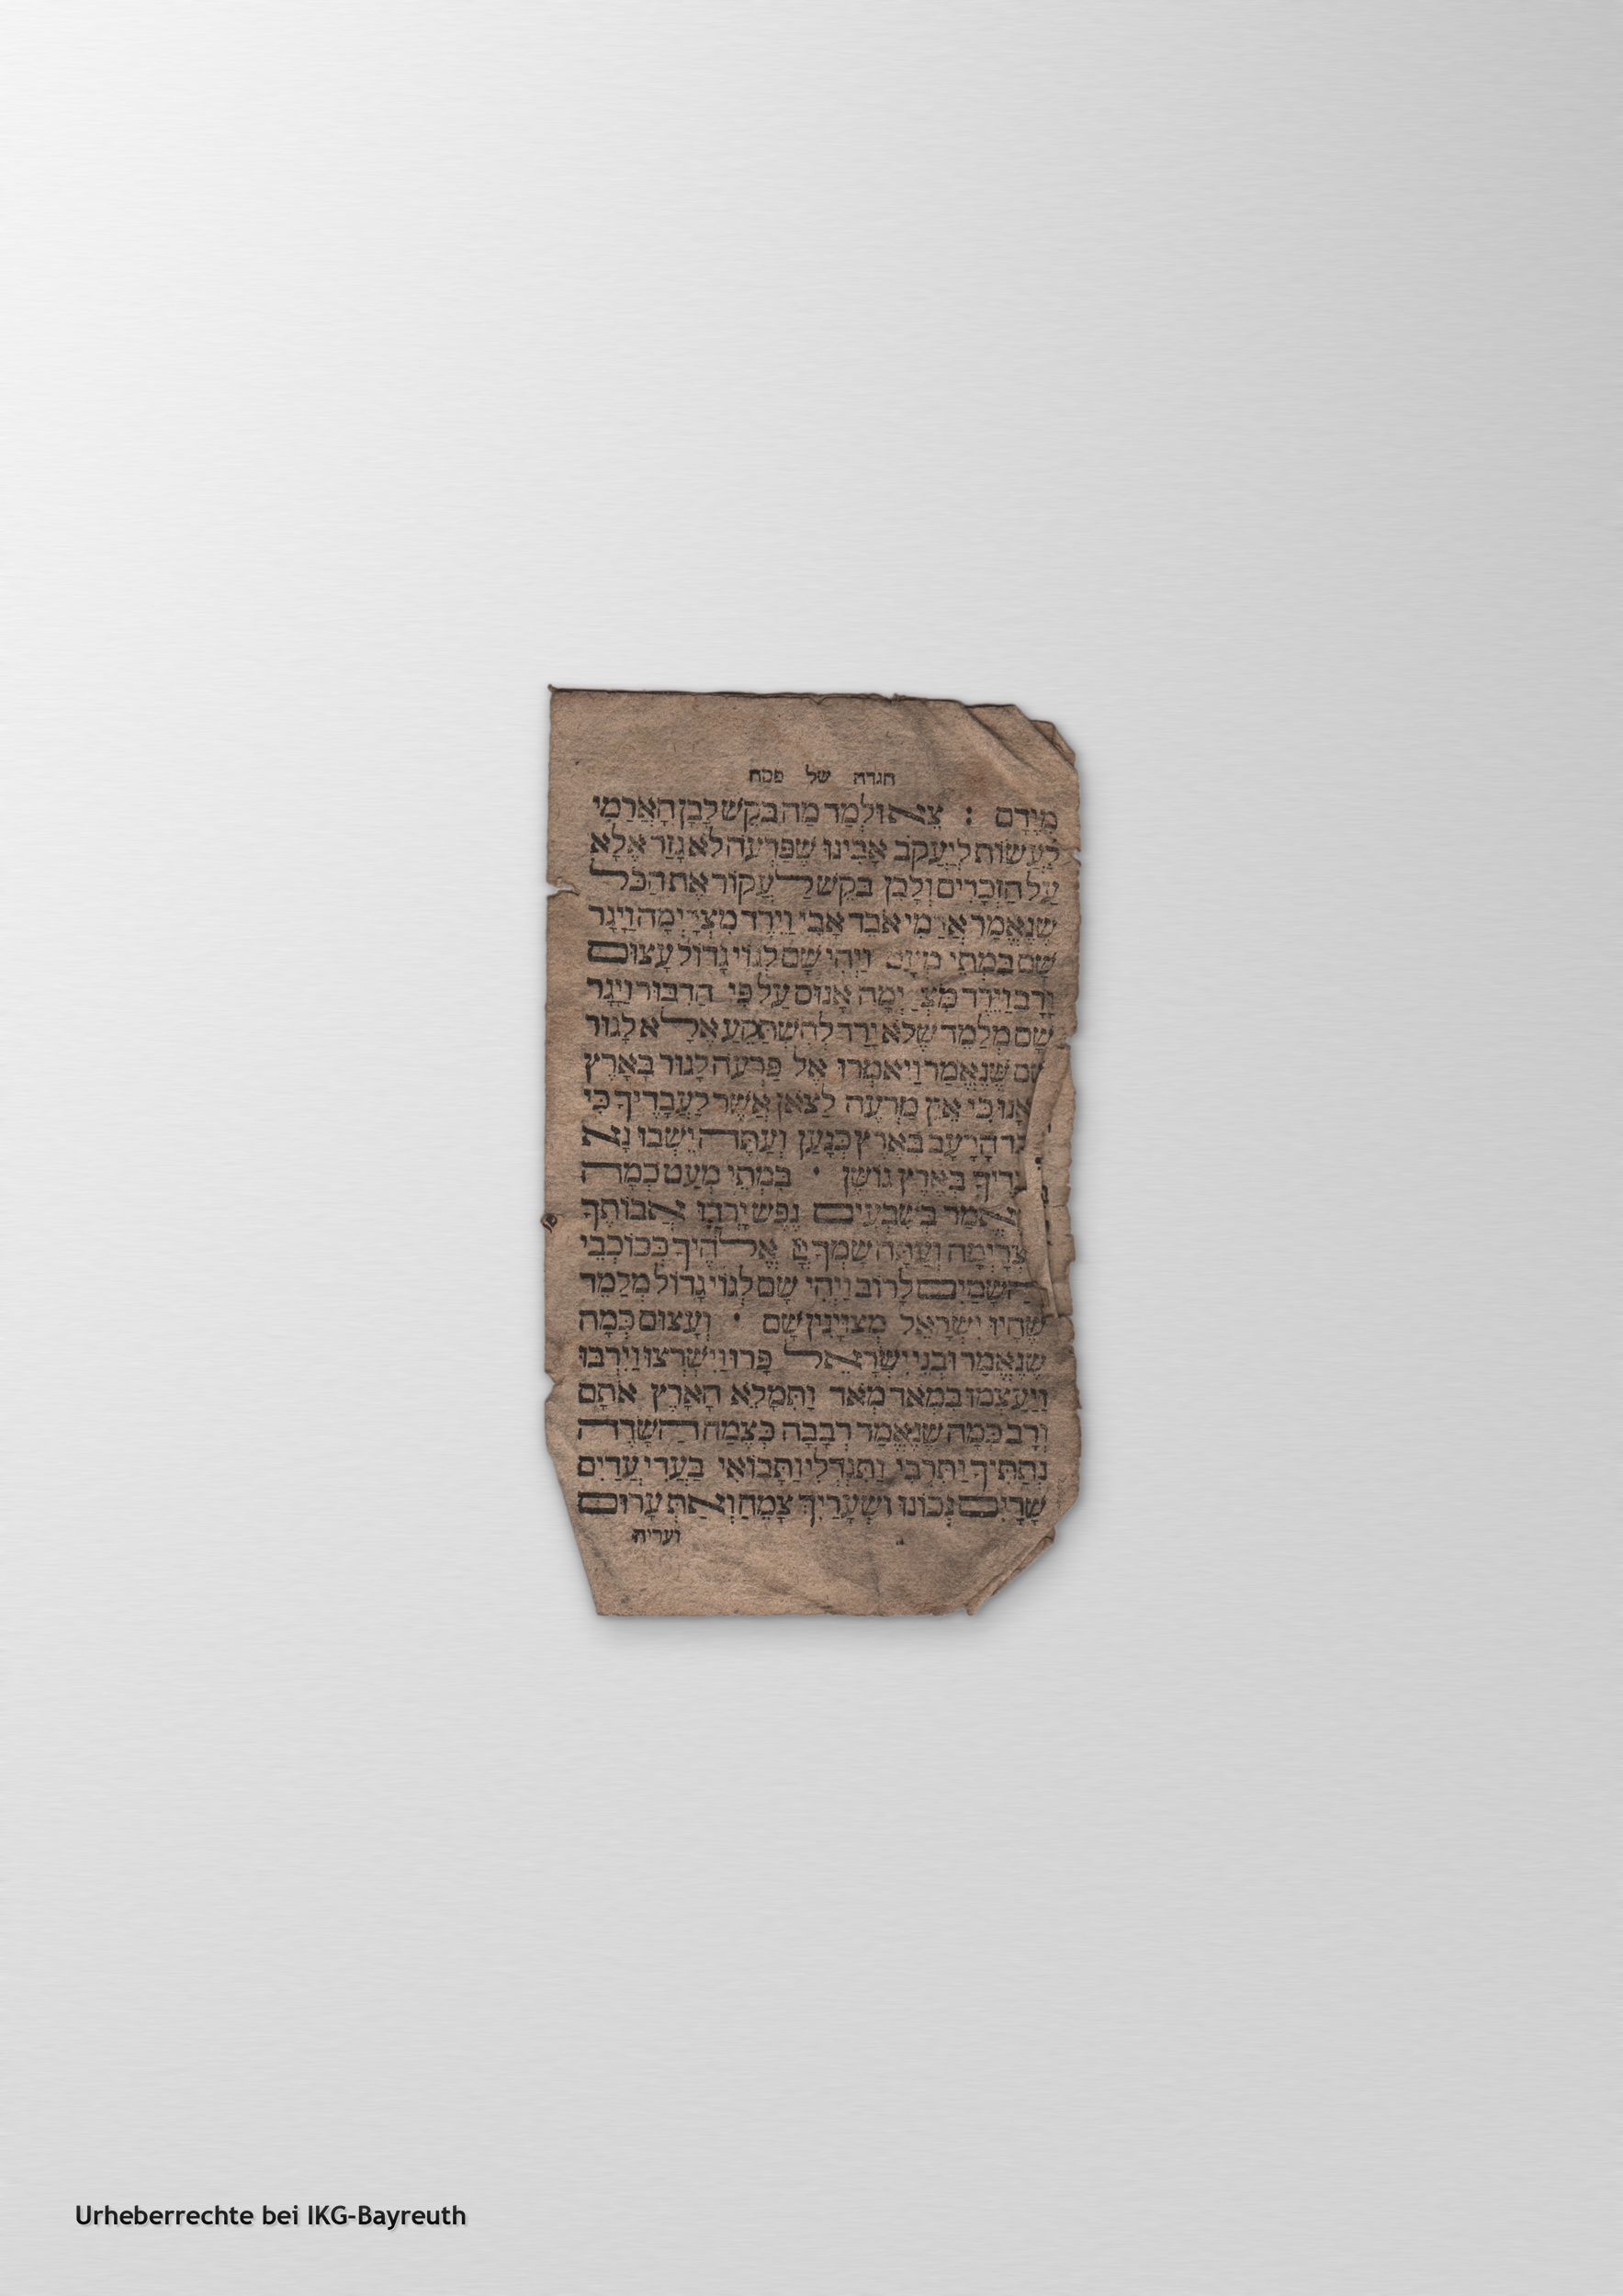 הגדה של פסח
מִיָּדָם : צֵא וּלְמַד מַה בִּקֵּשׁ לָבָן הָאֲרַמִּי
לַעֲשׂוֹת לְיַעֲקֹב אָבִינוּ שֶׁפַּרְעֹה לֹא גָזַר אֶלָּא
עַל הַזְּכָרִים וְלָבָן בִּקֵּשׁ לַעֲקוֹר אֶת הַכֹּל
שֶׁנֶּאֱמַר אֲרַמִּי אֹבֵד אָבִי וַיֵּרֶד מִצְרַיְמָה וַיָּגָר
שָׁם בִּמְתֵי וַיְהִי שָׁם לְגוֹי גָּדוֹל עָצוּם
וָרָב וַיֵּרֶד אָנוּס עַל פִּי הַדִּבּוּר וַיָּגָר
שָׁם מְלַמֵּד שֶׁלֹּא יָרַד לְהִשְׁתַּקֵּעַ אֶלָּא לָגוּר
שֶׁנֶּאֱמַר וַיֹּאמְרוּ אֶל פַּרְעֹה לָגוּר בָּאָרֶץ
כִּי אֵין מִרְעֶה לַצֹּאן אֲשֶׁר לַעֲבָדֶיךָ כִּי
הָרָעָב בְּאֶרֶץ כְּנָעַן וְעַתָּה יֵשְׁבוּ נָא
בְּאֶרֶץ גּוֹשֶׁן · בִּמְתֵי מְעַט כְּמָה
בְּשִׁבְעִים נֶפֶשׁ יָרְדוּ אֲבוֹתֶיךָ
וְעַתָּה שָׂמְךָ יְיָ אֱלֹהֶיךָ כְּכוֹכְבֵי
הַשָּׁמַיִם לָרוֹב וַיְהִי שָׁם לְגוֹי גָּדוֹל מְלַמֵּד
שֶׁהָיוּ יִשְׂרָאֵל מְצוּיָּנִין שָׁם · וְעָצוּם כְּמָה
שֶׁנֶּאֱמַר וּבְנֵי יִשְׂרָאֵל פָּרוּ וַיִּשְׁרְצוּ וַיִּרְבּוּ
וַיַּעַצְמוּ בִּמְאֹד מְאֹד וַתִּמָּלֵא הָאָרֶץ אֹתָם
וָרָב כְּמָה שֶׁנֶּאֱמַר רְבָבָה כְּצֶמַח הַשָּׂדֶה
נְתַתִּיךְ וַתִּרְבִּי וַתִּגְדְּלִי וַתָּבוֹאִי בַּעֲדִי עֲדָיִם
שָׁדַיִם נָכוֹנוּ וּשְׂעָרֵיךְ צָמֵחַ וְאַתְּ עֵרוֹם
ועריה
Urheberrechte bei IKG-Bayreuth